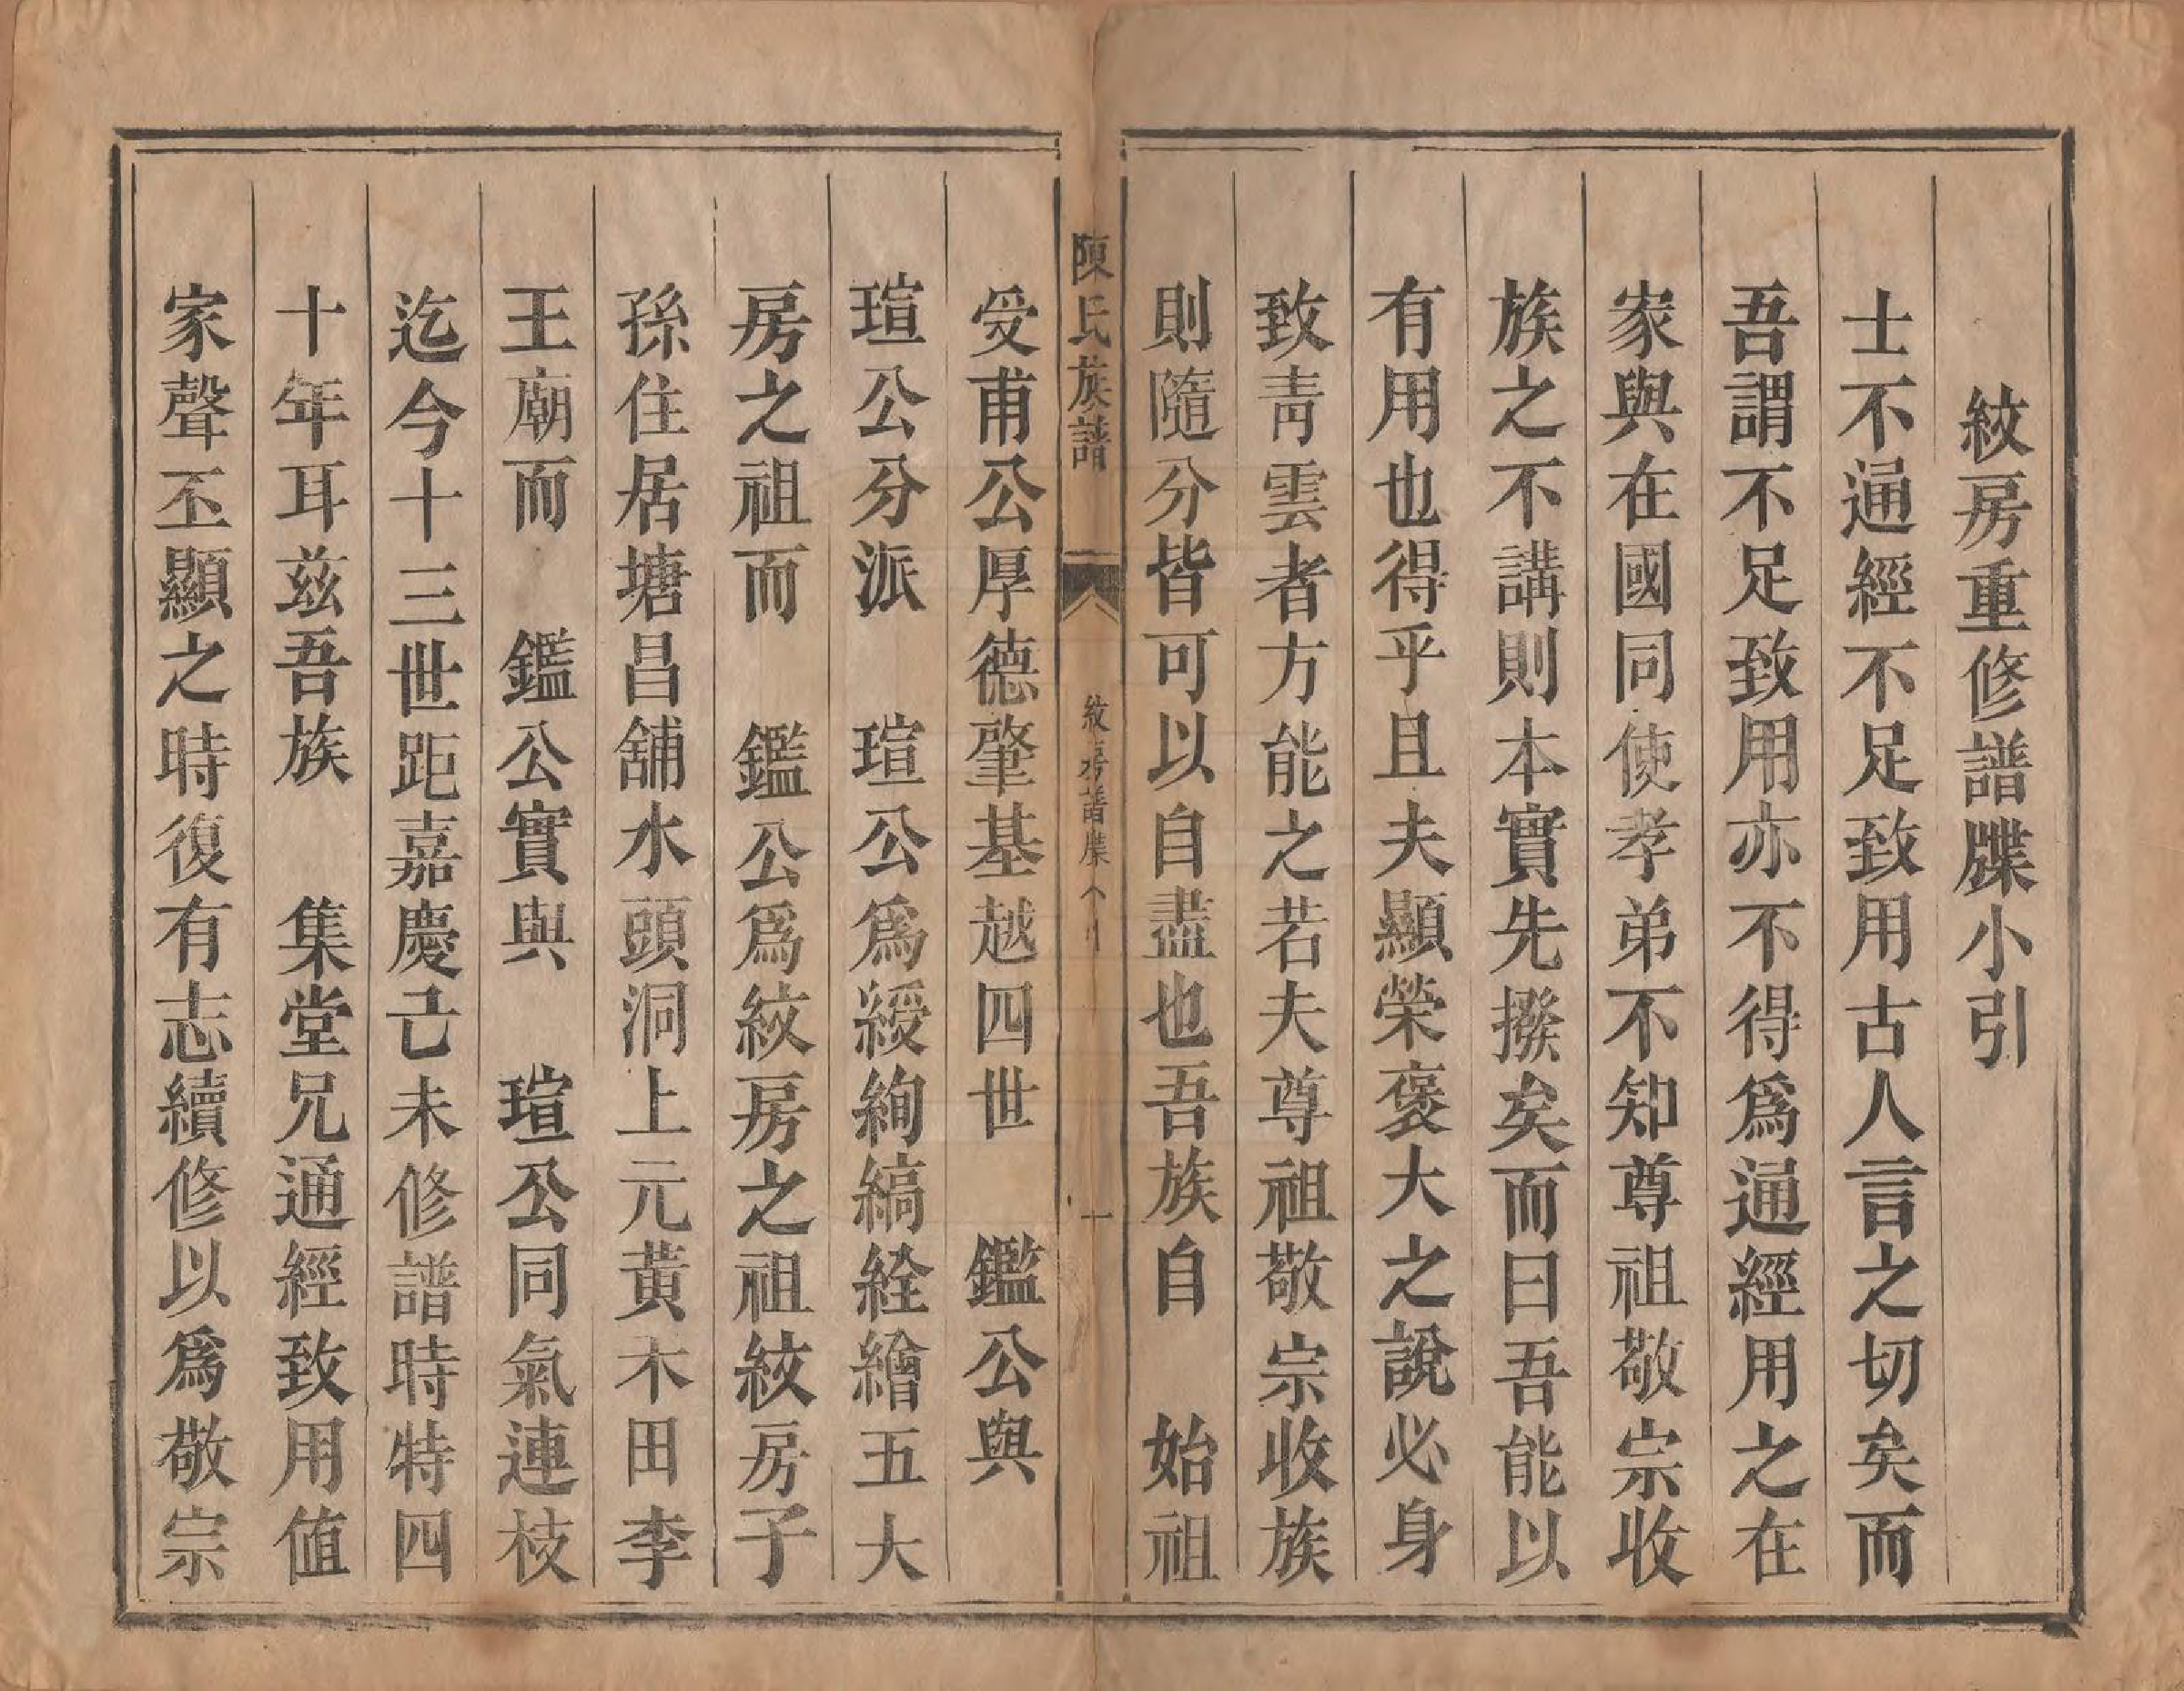 紋房重修譜牒小引
士不通經不足致用古人言之切矣而
吾謂不足致用亦不得爲通經用之在
家與在國同使孝弟不知尊祖敬宗收
族之不講則本實先撥矣而曰吾能以
有用也得乎且夫顯榮褒大之說必身
致靑雲者方能之若夫尊祖敬宗收族
則隨分皆可以自盡也吾族自　始祖
陳氏族譜
紋房譜牒
一
受甫公厚德肇基越四世　鑑公與
瑄公分派　瑄公爲綬絢縞絟繪五大
房之祖而　鑑公爲紋房之祖紋房子
孫住居塘昌舖水頭洞上元黃木田李
王廟而　鑑公實與　瑄公同氣連枝
迄今十三世距嘉慶己未修譜時特四
十年耳兹吾族　集堂兄通經致用值
家聲丕顯之時復有志續修以爲敬宗